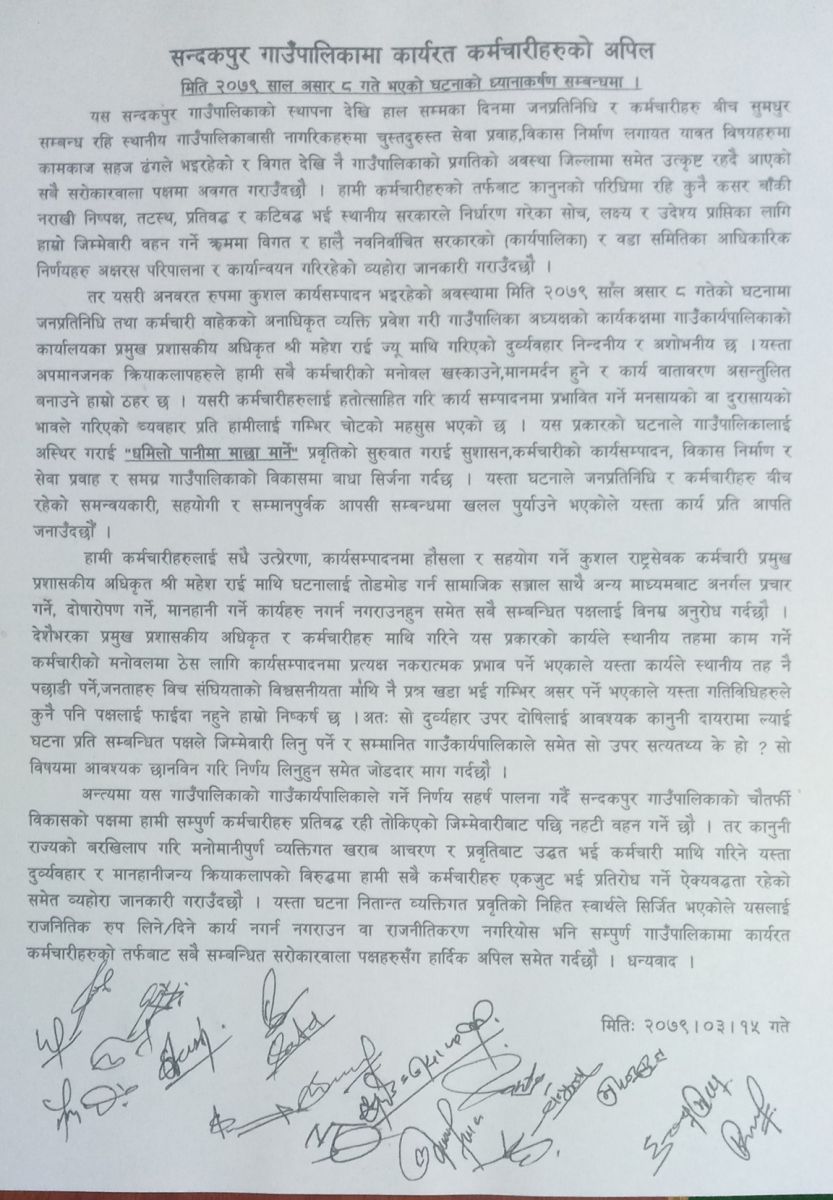 सन्दकपुर गाउँपालिकामा कार्यरत कर्मचारीहरुको अपिल
मिति २०७९ साल असार ८ गते भएको घटनाको ध्यानाकर्षण सम्बन्धमा ।
यस सन्दकपुर गाउँपालिकाको स्थापना देखि हाल सम्मका दिनमा जनप्रतिनिधि र कर्मचारीहरु बीच सुमधुर
सम्बन्ध रहि स्थानीय गाउँपालिकाबासी नागरिकहरुमा चुस्तदुरुस्त सेवा प्रवाह,विकास निर्माण लगायत यावत विषयहरुमा
कामकाज सहज ढंगले भइरहेको र विगत देखि नै गाउँपालिकाको प्रगतिको अवस्था जिल्लामा समेत उत्कृष्ट रहदै आएको
सबै सरोकारवाला पक्षमा अवगत गराउँदछौ । हामी कर्मचारीहरुको तर्फबाट कानुनको परिधिमा रहि कुनै कसर बाँकी
नराखी निष्पक्ष, तटस्थ, प्रतिवद्ध र कटिवद्ध भई स्थानीय सरकारले निर्धारण गरेका सोच, लक्ष्य र उदेश्य प्राप्तिका लागि
हाम्रो जिम्मेवारी वहन गर्ने क्रममा विगत र हालै नवनिर्वाचित सरकारको (कार्यपालिका) र वडा समितिका आधिकारिक
निर्णयहरु अक्षरस परिपालना र कार्यान्वयन गरिरहेको व्यहोरा जानकारी गराउँदछौ ।
तर यसरी अनवरत रुपमा कुशल कार्यसम्पादन भइरहेको अवस्थामा मिति २०७९ साल असार ८ गतेको घटनामा
जनप्रतिनिधि तथा कर्मचारी वाहेकको अनाधिकृत व्यक्ति प्रवेश गरी गाउँपालिका अध्यक्षको कार्यकक्षमा गाउँकार्यपालिकाको
कार्यालयका प्रमुख प्रशासकीय अधिकृत श्री महेश राई ज्यू माथि गरिएको दुर्व्यवहार निन्दनीय र अशोभनीय छ ।यस्ता
अपमानजनक क्रियाकलापहरुले हामी सबै कर्मचारीको मनोवल खस्काउने,मानमर्दन हुने र कार्य वातावरण असन्तुलित
बनाउने हाम्रो ठहर छ । यसरी कर्मचारीहरुलाई हतोत्साहित गरि कार्य सम्पादनमा प्रभावित गर्ने मनसायको वा दुरासायको
भावले गरिएको व्यवहार प्रति हामीलाई गम्भिर चोटको महसुस भएको छ । यस प्रकारको घटनाले गाउँपालिकालाई
अस्थिर गराई "धमिलो पानीमा माछा मार्ने" प्रवृतिको सुरुवात गराई सुशासन,कर्मचारीको कार्यसम्पादन, विकास निर्माण र
सेवा प्रवाह र समग्र गाउँपालिकाको विकासमा वाधा सिर्जना गर्दछ । यस्ता घटनाले जनप्रतिनिधि र कर्मचारीहरु बीच
रहेको समन्वयकारी, सहयोगी र सम्मानपुर्वक आपसी सम्बन्धमा खलल पुर्याउने भएकोले यस्ता कार्य प्रति आपति
जनाउँदछौं ।
हामी कर्मचारीहरुलाई सधै उत्प्रेरणा, कार्यसम्पादनमा हौसला र सहयोग गर्ने कुशल राष्ट्रसेवक कर्मचारी प्रमुख
प्रशासकीय अधिकृत श्री महेश राई माथि घटनालाई तोडमोड गर्न सामाजिक सञ्जाल साथै अन्य माध्यमबाट अनर्गल प्रचार
गर्ने, दोषारोपण गर्ने, मानहानी गर्ने कार्यहरु नगर्न नगराउनहुन समेत सबै सम्बन्धित पक्षलाई विनम्र अनुरोध गर्दछौ ।
देशैभरका प्रमुख प्रशासकीय अधिकृत र कर्मचारीहरु माथि गरिने यस प्रकारको कार्यले स्थानीय तहमा काम गर्ने
कर्मचारीको मनोवलमा ठेस लागि कार्यसम्पादनमा प्रत्यक्ष नकरात्मक प्रभाव पर्ने भएकाले यस्ता कार्यले स्थानीय तह नै
पछाडी पर्ने,जनताहरु विच संघियताको विश्वसनीयता माथि नै प्रश्न खडा भई गम्भिर असर पर्ने भएकाले यस्ता गतिविधिहरुले
कुनै पनि पक्षलाई फाईदा नहुने हाम्रो निष्कर्ष छ ।अतः सो दुर्व्यहार उपर दोषिलाई आवश्यक कानुनी दायरामा ल्याई
घटना प्रति सम्बन्धित पक्षले जिम्मेवारी लिनु पर्ने र सम्मानित गाउँकार्यपालिकाले समेत सो उपर सत्यतथ्य के हो ? सो
विषयमा आवश्यक छानविन गरि निर्णय लिनुहुन समेत जोडदार माग गर्दछौ ।
अन्त्यमा यस गाउँपालिकाको गाउँकार्यपालिकाले गर्ने निर्णय सहर्ष पालना गर्दै सन्दकपुर गाउँपालिकाको चौतर्फी
विकासको पक्षमा हामी सम्पुर्ण कर्मचारीहरु प्रतिवद्ध रही तोकिएको जिम्मेवारीबाट पछि नहटी वहन गर्ने छौ । तर कानुनी
राज्यको बरखिलाप गरि मनोमानीपुर्ण व्यक्तिगत खराब आचरण र प्रवृतिबाट उद्धत भई कर्मचारी माथि गरिने यस्ता
दुर्व्यवहार र मानहानीजन्य क्रियाकलापको विरुद्धमा हामी सबै कर्मचारीहरु एकजुट भई प्रतिरोध गर्ने ऐक्यवद्धता रहेको
समेत व्यहोरा जानकारी गराउँदछौ । यस्ता घटना नितान्त व्यक्तिगत प्रवृतिको निहित स्वार्थले सिर्जित भएकोले यसलाई
राजनितिक रुप लिने/दिने कार्य नगर्न नगराउन वा राजनीतिकरण नगरियोस भनि सम्पुर्ण गाउँपालिकामा कार्यरत
कर्मचारीहरुको तर्फबाट सबै सम्बन्धित सरोकारवाला पक्षहरुसँग हार्दिक अपिल समेत गर्दछौ । धन्यवाद ।
मितिः २०७९।०३।१५ गते